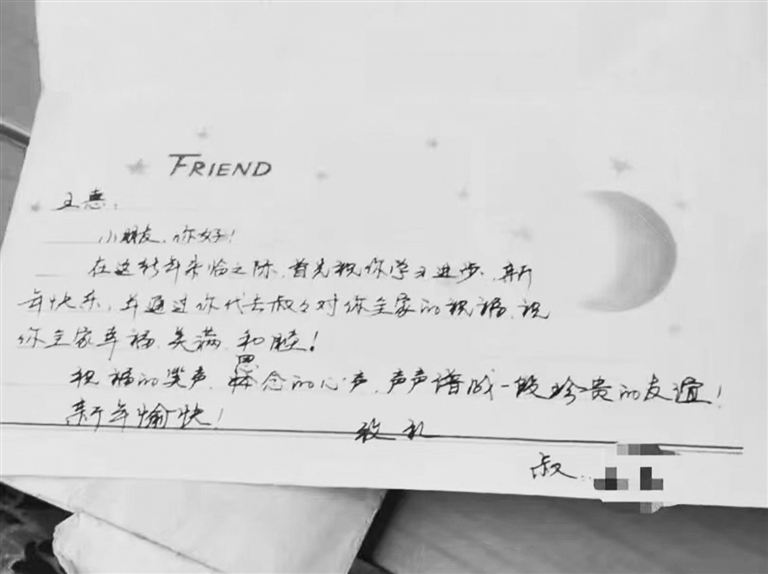 FRIEND
王惠:
小朋友,你好!
在这新年来临之际,首先祝你学习进步,新
年快乐,并通过你代去叔々对你全家的祝福,祝
你全家幸福、美满、和睦!
祝福的笑声,思念的心声,声声谱成一段珍贵的友谊!
新年愉快!
致礼
叔: